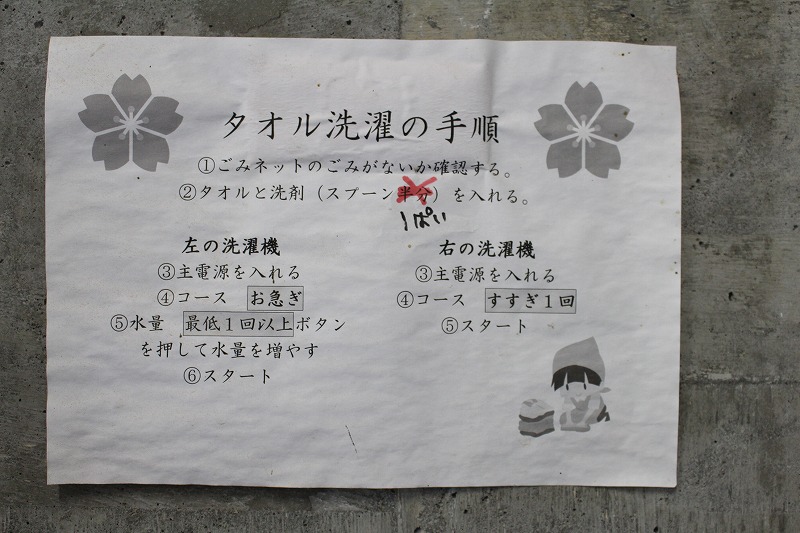 タオル洗濯の手順
①ごみネットのごみがないか確認する。
②タオルと洗剤（スプーン半分）を入れる。
1ぱい
左の洗濯機
③主電源を入れる
④コース お急ぎ
⑤水量 最低１回以上ボタン
を押して水量を増やす
⑥スタート
右の洗濯機
③主電源を入れる
④コース すすぎ１回
⑤スタート